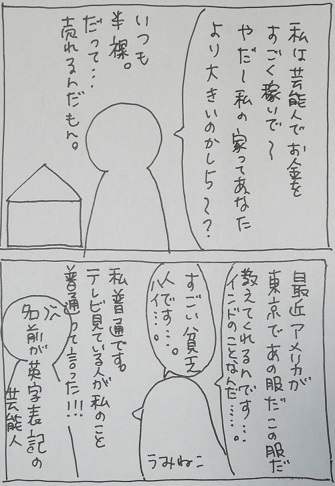 私は芸能人でお金を
すごく稼いで～
やだー私の家ってあなた
より大きいのかしら～？
いつも
半裸。
だって…
売れるんだもん。
最近アメリカが
東京であの服だこの服だ
教えてくれるんです…。
インドのことなんだ…。
すごい貧乏
人です…。
私普通です。
テレビ見ている人が私のこと
普通って言った!!!
名前が英字表記の
芸能人
うみねこ